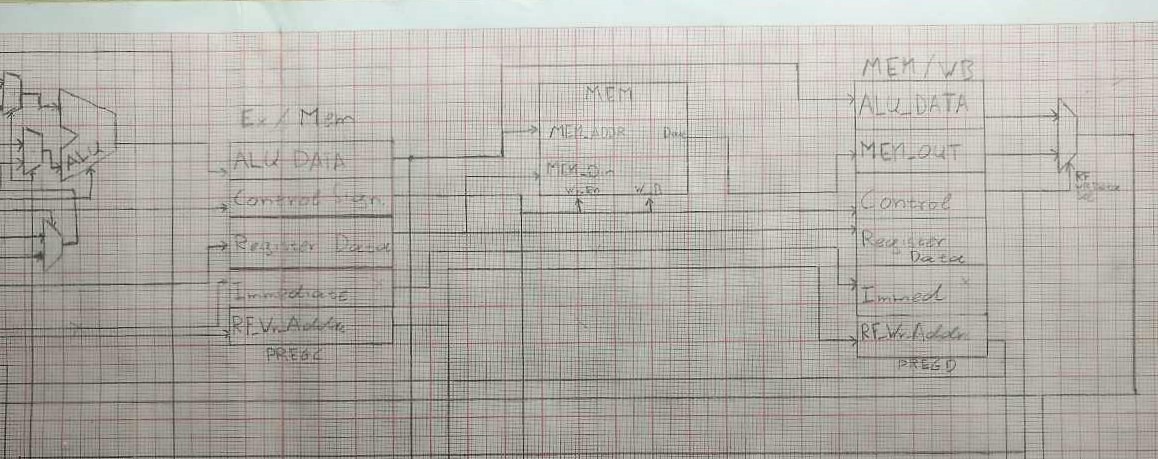 ALU
Ex / Mem
ALU DATA
Control Sign.
Register Data
Immediate
RF_Wr_Addr
PREGC
MEM
MEM_ADDR
MEM_Din
Wr_En
MEM/WB
ALU_DATA
MEM_OUT
Control
Register
Data
Immed
RF_Wr_Addr
PREGD
RF